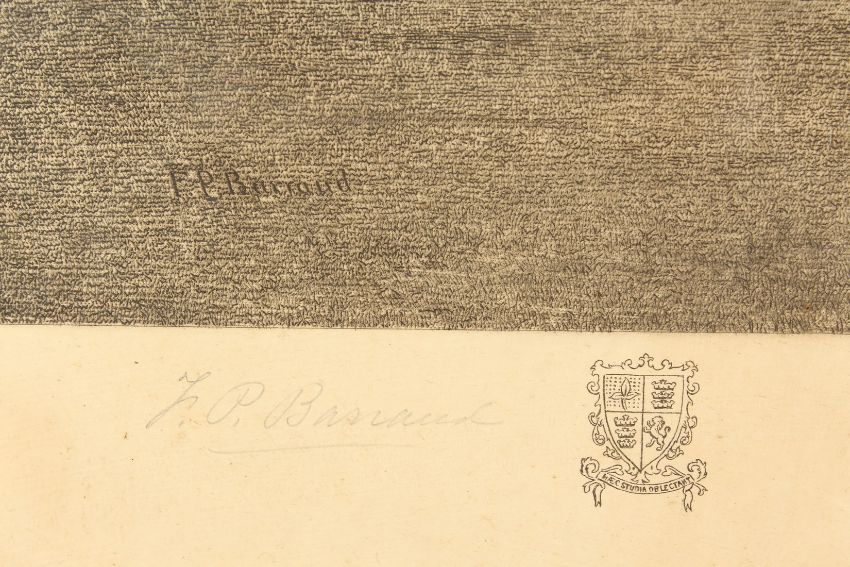 F. P. Barraud
F. P. Barraud
HÆC STUDIA OBLECTANT